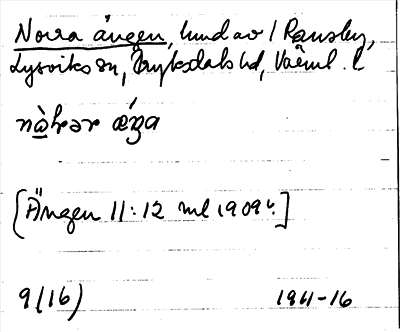 Norra ängen, hund av 1 Ransby,
Lysviks sn, Fryksdals hd, Värml. l
nàhrər æŋa
[Ängen 11:12 ml 1909 v.]
9(16) 1911-16